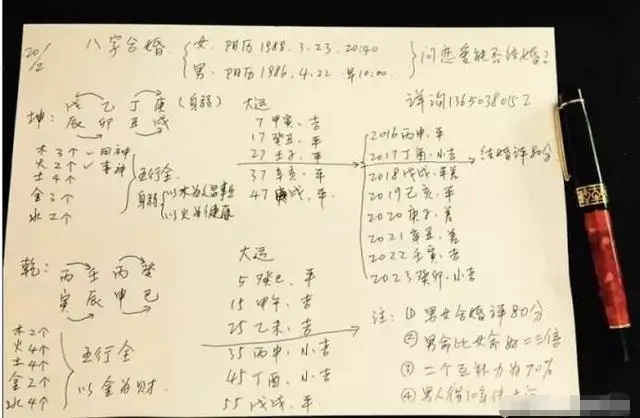 20/2
八字合婚
女:阳历1988.3.23.20:40
男:阳历1986.4.22.早10:00.
问恋爱能否结婚?
详询13650380152
坤:
戊乙丁庚(身弱)
辰卯丑戌
木3个✓用神
火2个✓喜神
土4个
金3个
水2个
五行全
身弱
以木为
以火为健康
大运
7甲寅、吉
17癸丑、平
27壬子、平
37辛亥、平
47庚戌、平
2016丙申、平
2017丁酉、小吉
2018戊戌、平
2019己亥、平
2020庚子、差
2021辛丑、差
2022壬寅、吉
2023癸卯、小吉
结婚评80分
乾:
丙壬丙癸
寅辰申巳
木2个
火4个
土4个
金2个
水4个
五行全
以金为财
大运
5癸巳、平
15甲午、吉
25乙未、吉
35丙申、小吉
45丁酉、小吉
55戊戌、平
注:①男女合婚评80分
②男命比女命好二三倍
③二个互补力为70%
④男人得